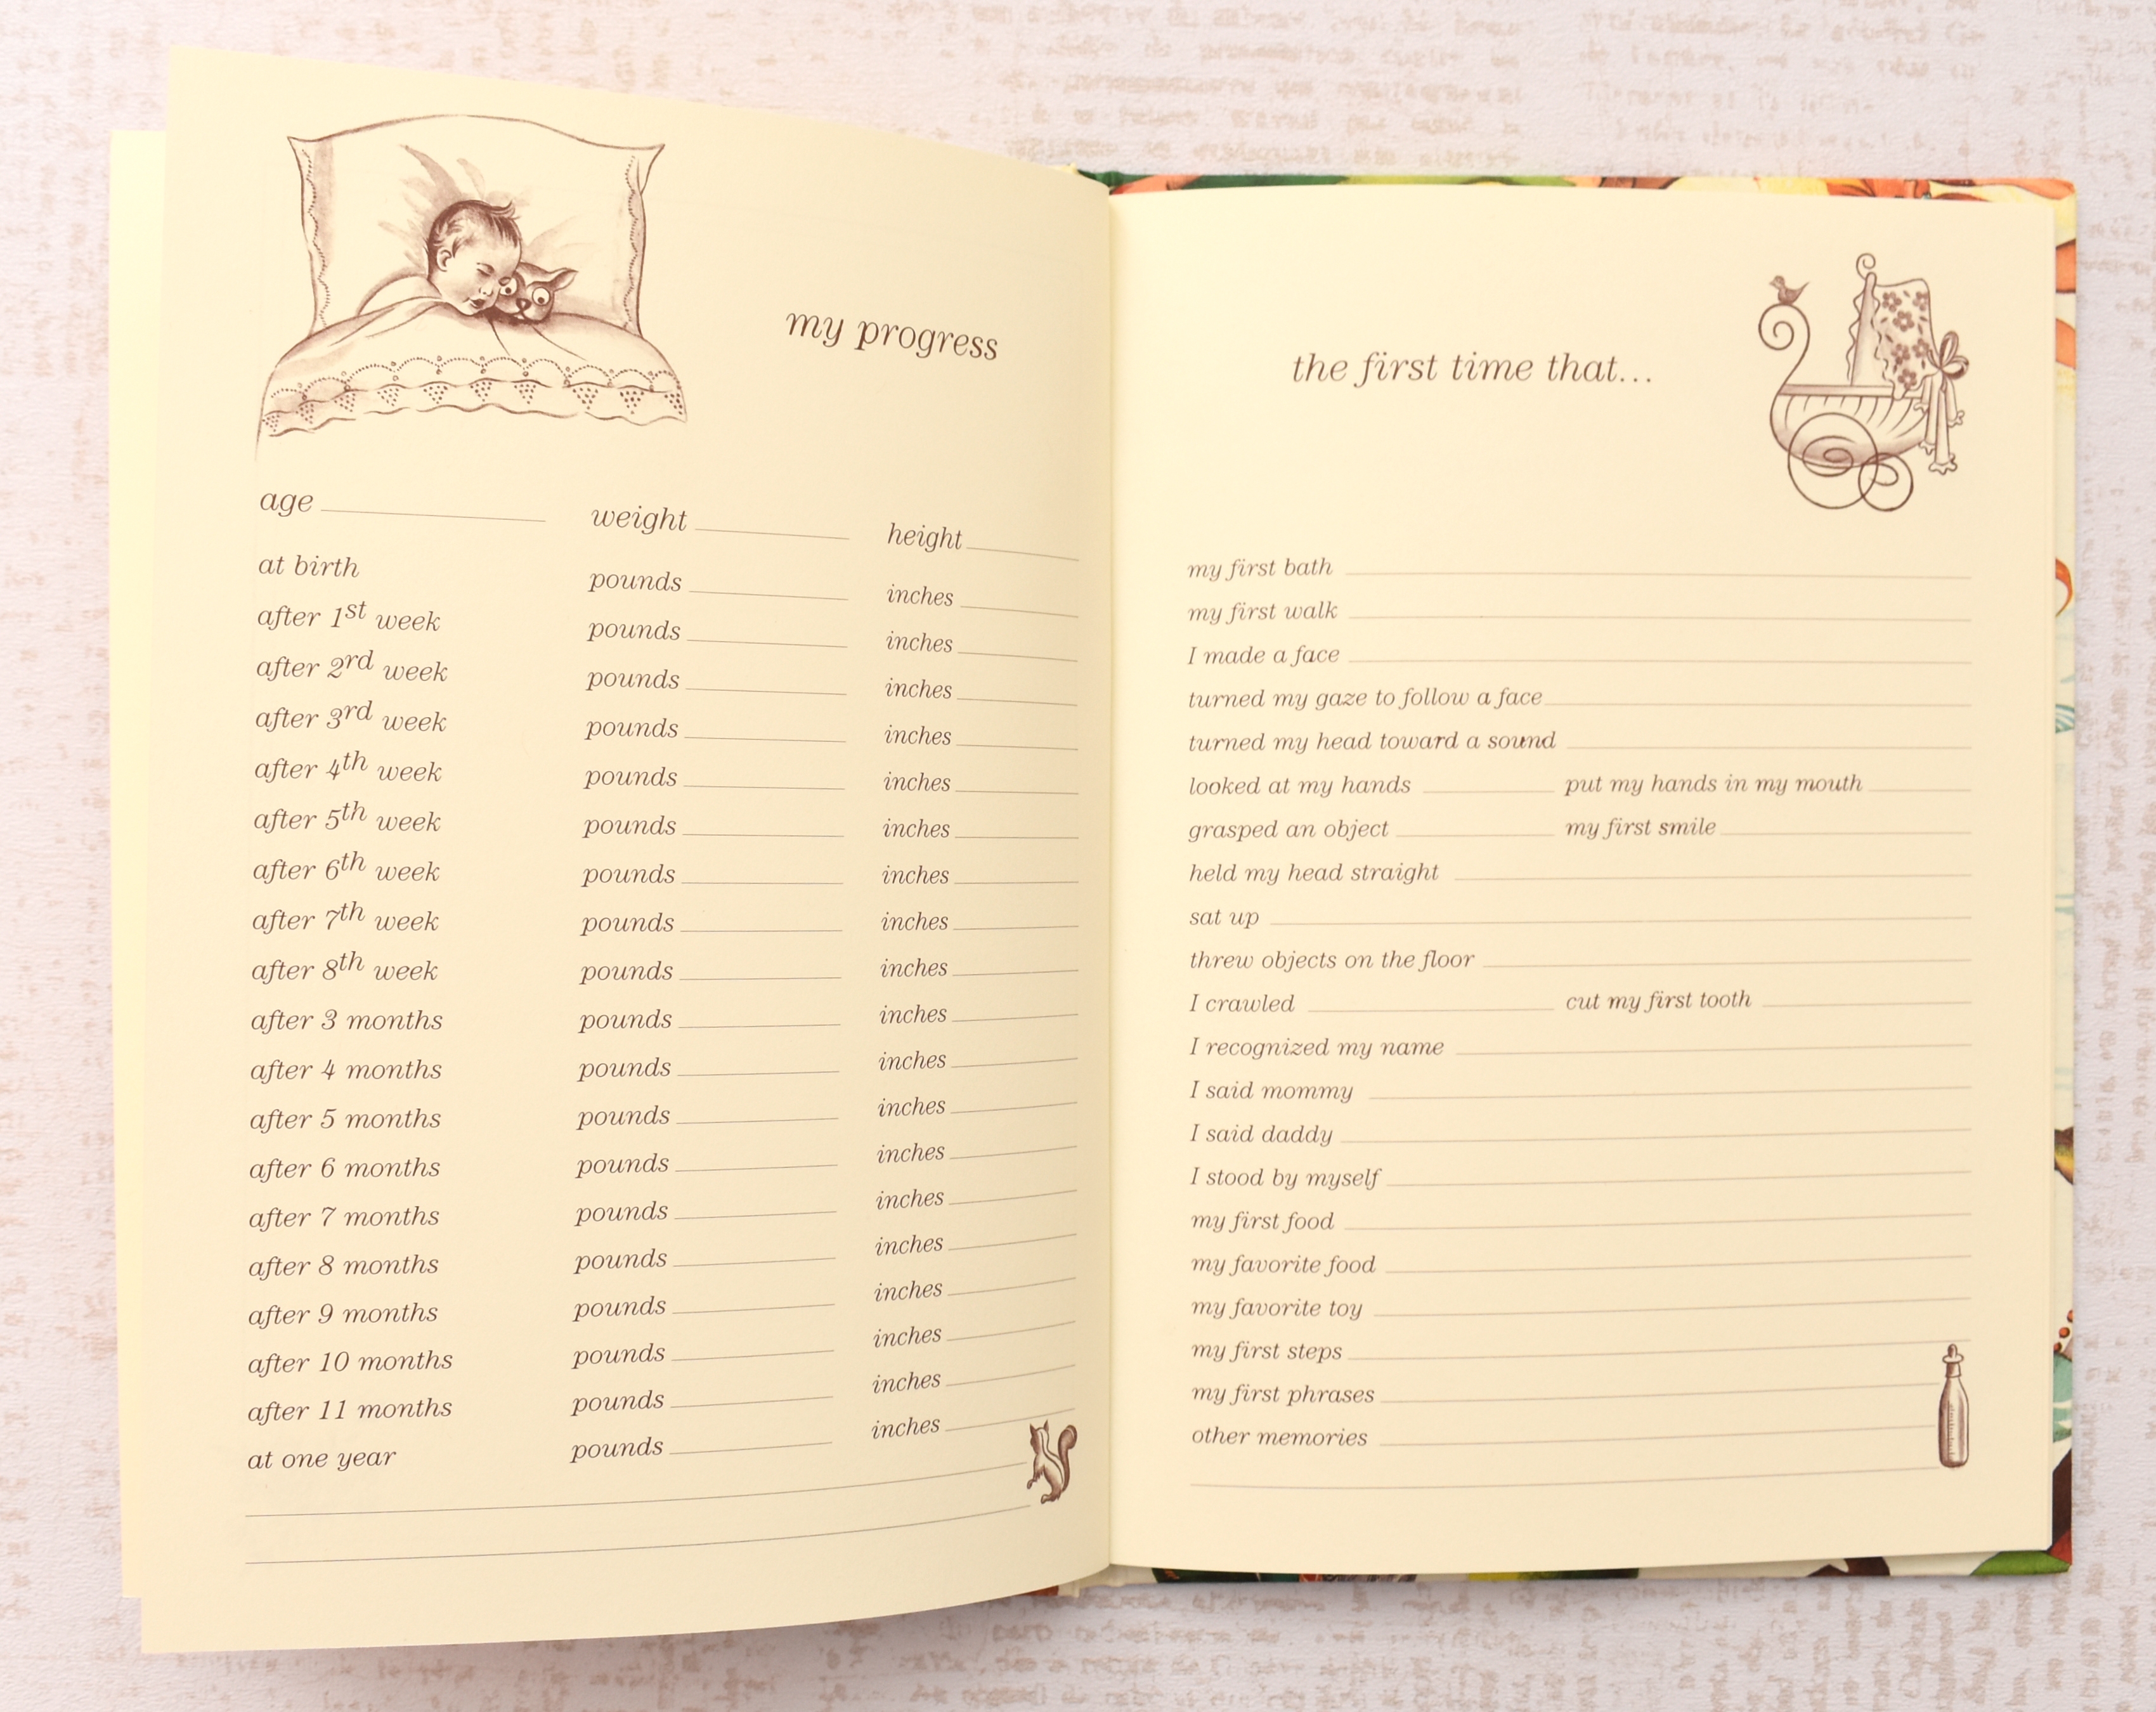 my progress
age weight height
at birth pounds inches
after 1st week pounds inches
after 2rd week pounds inches
after 3rd week pounds inches
after 4th week pounds inches
after 5th week pounds inches
after 6th week pounds inches
after 7th week pounds inches
after 8th week pounds inches
after 3 months pounds inches
after 4 months pounds inches
after 5 months pounds inches
after 6 months pounds inches
after 7 months pounds inches
after 8 months pounds inches
after 9 months pounds inches
after 10 months pounds inches
after 11 months pounds inches
at one year pounds inches
the first time that...
my first bath
my first walk
I made a face
turned my gaze to follow a face
turned my head toward a sound
looked at my hands put my hands in my mouth
grasped an object my first smile
held my head straight
sat up
threw objects on the floor
I crawled cut my first tooth
I recognized my name
I said mommy
I said daddy
I stood by myself
my first food
my favorite food
my favorite toy
my first steps
my first phrases
other memories